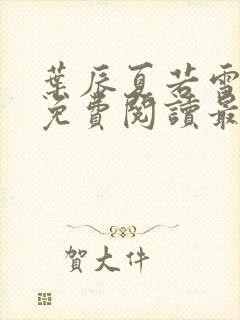 葉辰夏若雪
免費閱讀最
賀大件